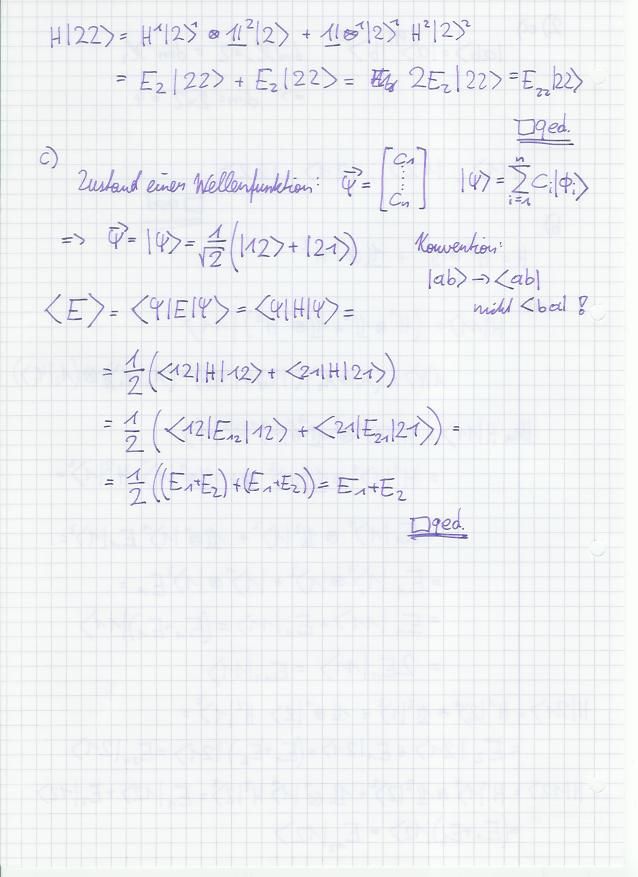 H|22⟩ = H¹|2⟩¹ ⊗ 1l²|2⟩ + 1l ⊗ ¹|2⟩¹ H²|2⟩²
= E₂|22⟩ + E₂|22⟩ = 2E₂|22⟩ = E₂₂|22⟩
□ qed.
c)
Zustand einer Wellenfunktion: ψ⃗ = [C₁ ⋮ Cₙ] |ψ⟩ = Σⁿᵢ₌₁ Cᵢ|ϕᵢ⟩
=> ψ⃗ = |ψ⟩ = 1/√2 (|12⟩ + |21⟩)
Konvention:
|ab⟩ → ⟨ab|
nicht ⟨ba| !
⟨E⟩ = ⟨ψ|E|ψ⟩ = ⟨ψ|H|ψ⟩ =
= 1/2 (⟨12|H|12⟩ + ⟨21|H|21⟩)
= 1/2 (⟨12|E₁₂|12⟩ + ⟨21|E₂₁|21⟩) =
= 1/2 ((E₁+E₂) + (E₁+E₂)) = E₁+E₂
□ qed.